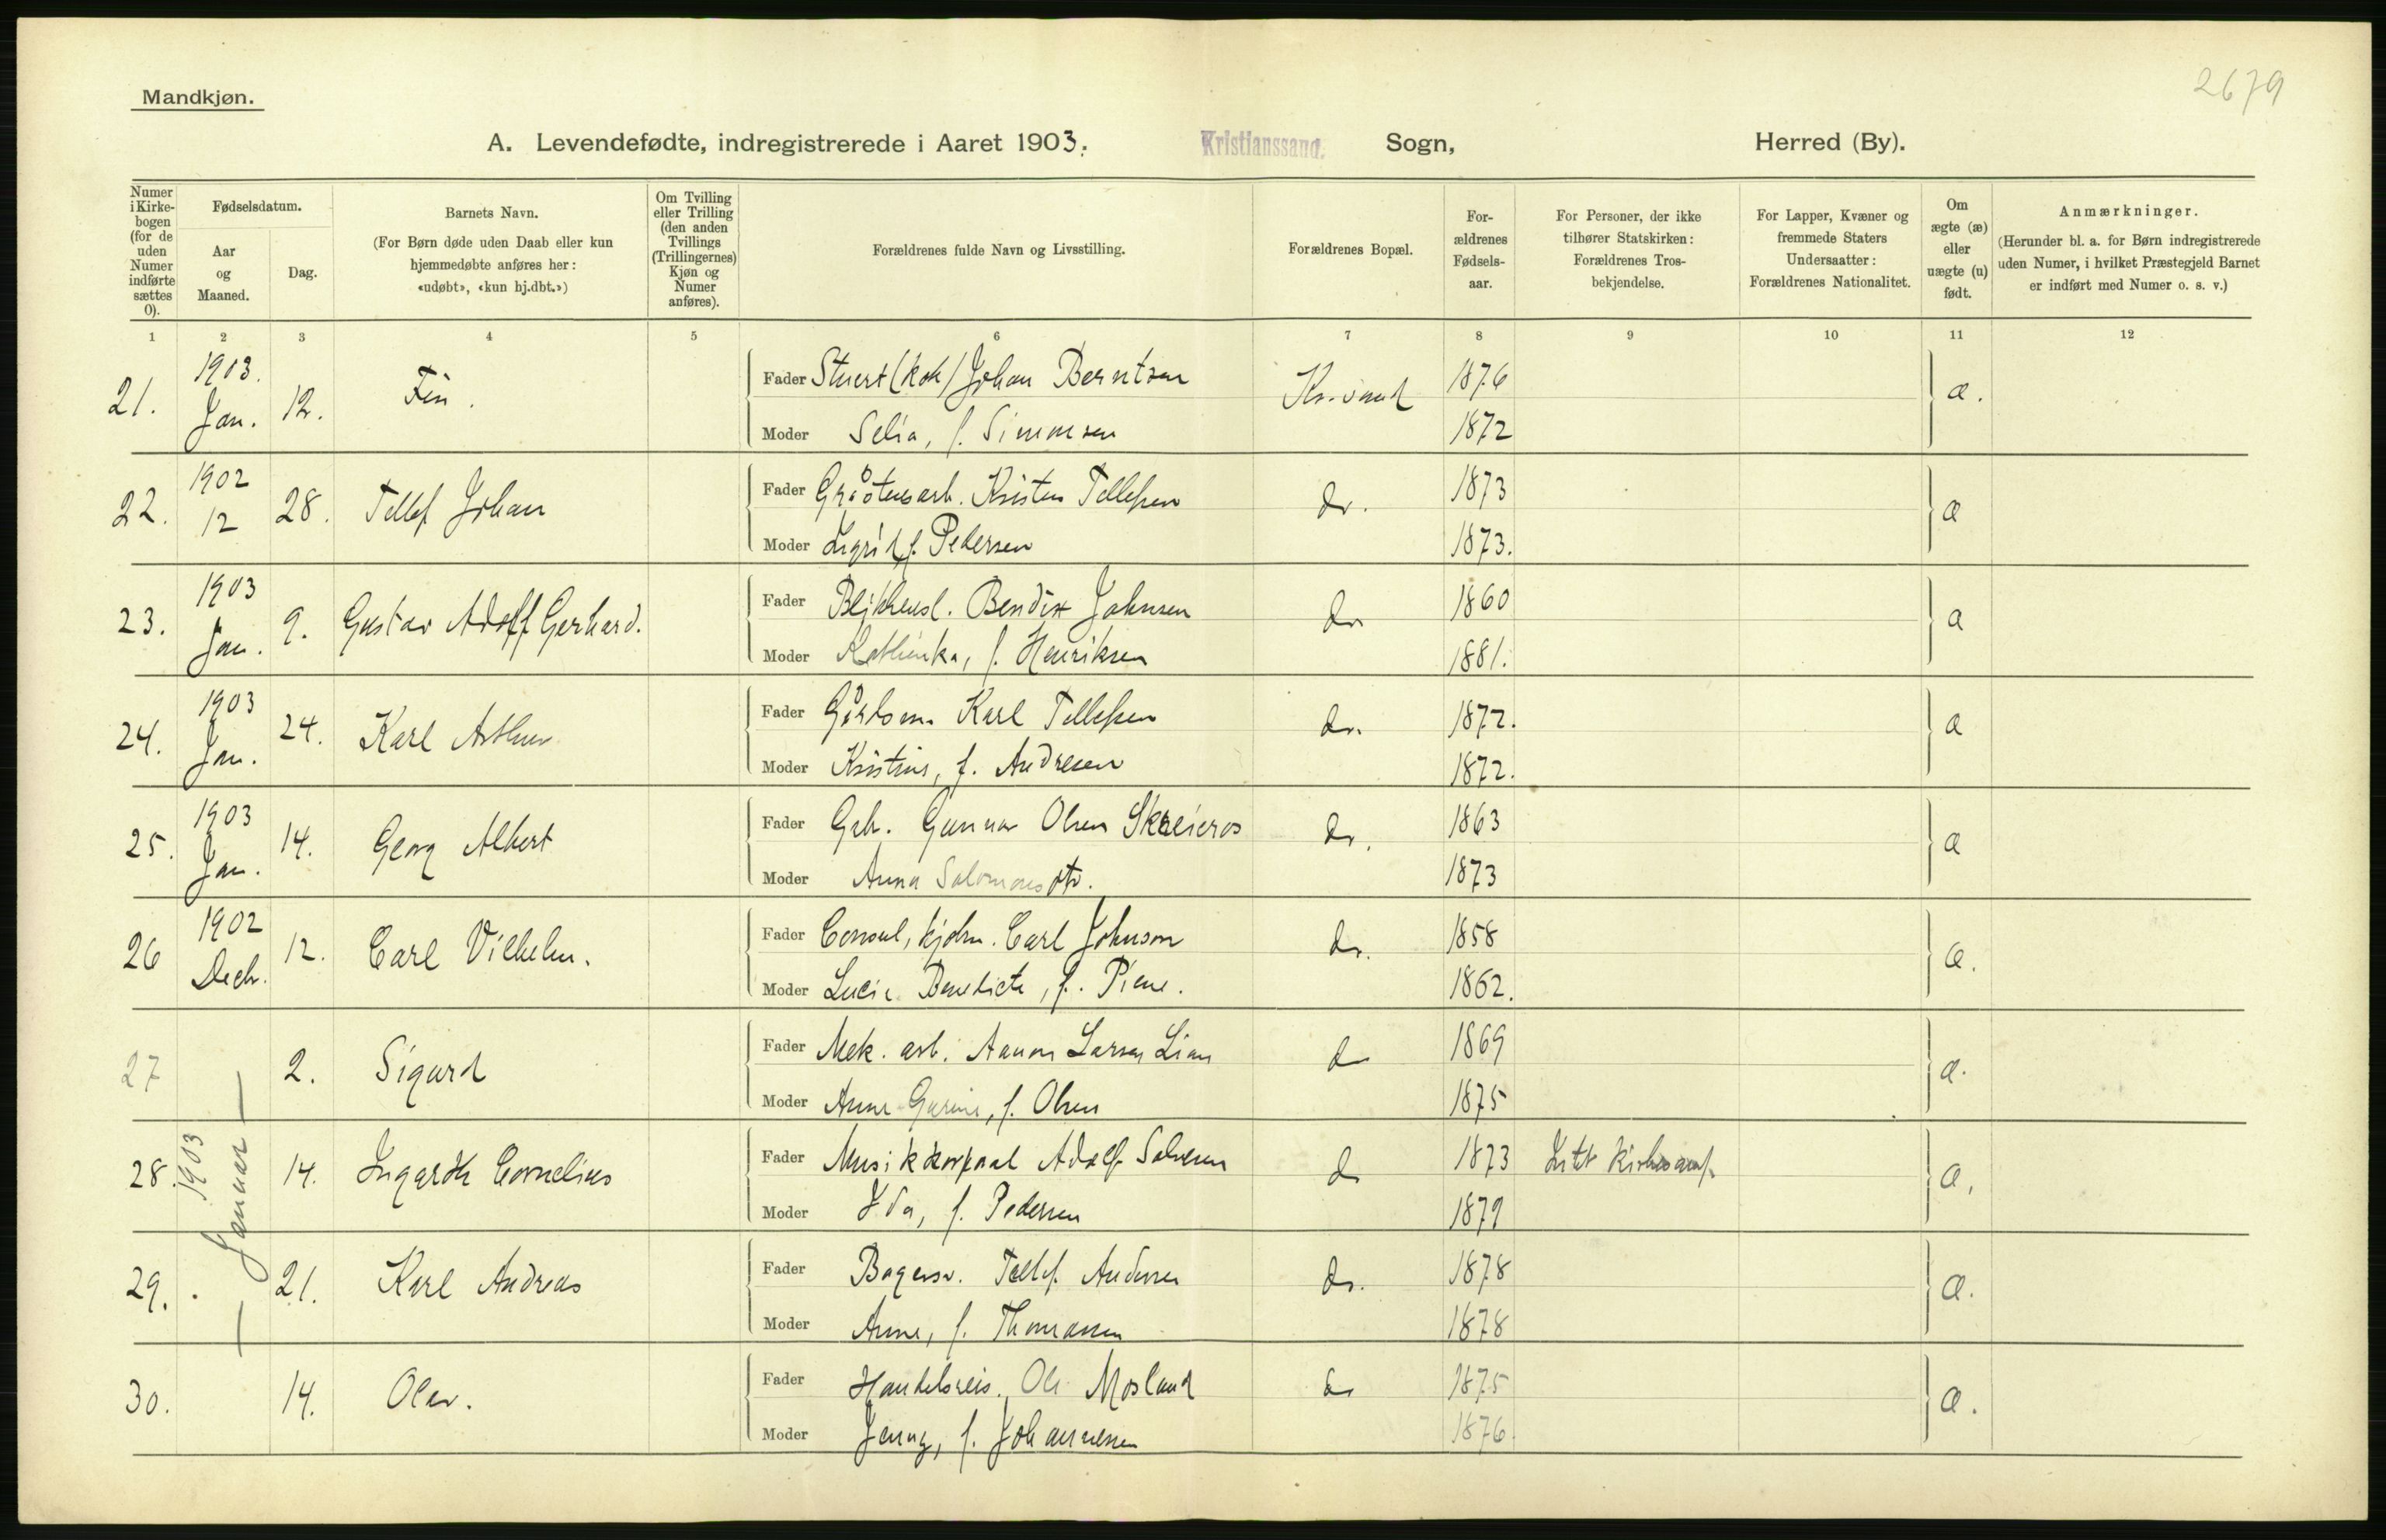 2679
Mandkjøn.
A. Levendefødte, indregistrerede i Aaret 1903. Kristianssand. Sogn, Herred (By).
Numer i Kirkebogen (for de uden Numer indførte sættes 0).
Fødselsdatum.
Aar og Maaned.
Dag.
Barnets Navn.
(For Børn døde uden Daab eller kun hjemmedøbte anføres her: «udøbt», «kun hj.dbt.»)
Om Tvilling eller Trilling (den anden Tvillings (Trillingernes) Kjøn og Numer anføres).
Forældrenes fulde Navn og Livsstilling.
Forældrenes Bopæl.
For-ældrenes Fødsels-aar.
For Personer, der ikke tilhører Statskirken: Forældrenes Tros-bekjendelse.
For Lapper, Kvæner og fremmede Staters Undersaatter: Forældrenes Nationalitet.
Om ægte (æ) eller uægte (u) født.
Anmærkninger.
(Herunder bl. a. for Børn indregistrerede uden Numer, i hvilket Præstegjeld Barnet er indført med Numer o. s. v.)
1 2 3 4 5 6 7 8 9 10 11 12
21. 1903. Jan. 12. Fin. Fader Stuert (kok) Johan Berntsen Kr.sand 1876 æ.
Moder Selia, f. Simonsen 1872
22. 1902 12 28. Tellef Johan Fader Gråstensarb. Kristen Tellefsen do. 1873 æ
Moder Ingrid f. Pedersen 1873.
23. 1903 Jan. 9. Gustav Adolf Gerhard. Fader Blikkensl. Bendix Johnsen do 1860 æ
Moder Kathinka, f. Henriksen 1881.
24. 1903 Jan. 24. Karl Arthur Fader Karl Tellefsen do. 1872. æ
Moder Kristine, f. Andresen 1872.
25. 1903 Jan. 14. Georg Albert Fader Gunnar Olsen do. 1863 æ
Moder Anna Salomonsdtr. 1873
26 1902 Decbr. 12. Carl Vilhelm. Fader Consul, kjøbm. Carl Johnson do. 1858 æ.
Moder Lucie Benedicte, f. Piene. 1862.
27 1903 Januar 2. Sigurd Fader Mek. arb. Aanon Larsen Lian do 1869 æ.
Moder Anne Gurine, f. Olsen 1875
28. 14. Ingardh Cornelius Fader Musikkorporal Adolf Salvesen do 1873 æ.
Moder Ida, f. Pedersen 1879
29. 21. Karl Andreas Fader Bagersv. Tellef Andersen do. 1878 æ.
Moder Anne, f. Thomassen 1878
30. 14. Olav. Fader Handelsreis. Ole Mosland do 1875 æ.
Moder Jenny, f. Johannessen 1876